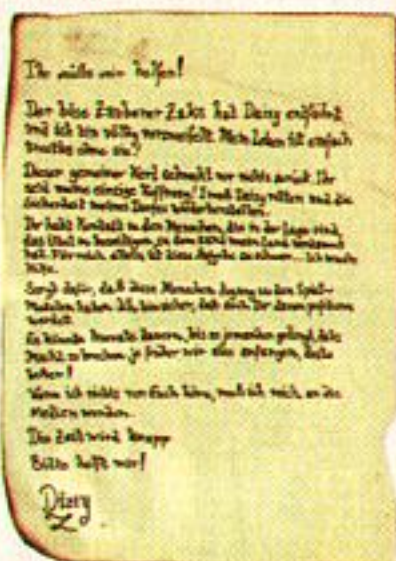 Ihr müßt mir helfen!
Der böse Zauberer Zaks hat Daisy entführt
und ich bin völlig verzweifelt. Mein Leben ist einfach
ohne sie!
Dieser gemeine Kerl schreckt vor nichts zurück. Ihr
seid meine einzige Hoffnung! Daisy retten und die
Sicherheit meines Dorfes wiederherstellen.
Ihr habt Kontakt zu den Menschen, die in der Lage sind,
das Übel zu beseitigen, mein Land
hat. Für mich allein ist diese Aufgabe zu schwer... Ich brauche
Hilfe.
Sorgt dafür, daß diese Menschen Zugang zu den Spiel-
Modulen haben. Ich bin sicher, daß
werdet.
Es könnte Monate dauern, bis es jemandem gelingt, Zaks
Macht zu brechen, je früher wir also anfangen, desto
besser!
Wenn ich nichts von Euch höre, muß ich mich an die
Medien wenden.
Die Zeit wird knapp
Bitte helft mir!
Dizzy